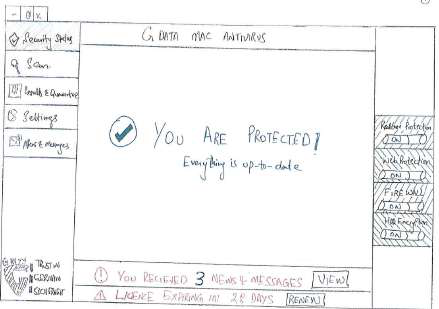 - O X
G DATA MAC ANTIVIRUS
Security Status
Scan
Results & Quarantine
Settings
News & Messages
YOU ARE PROTECTED!
Everything is up-to-date
Realtime Protection
ON
Web Protection
ON
FIREWALL
ON
HDD Encryption
ON
TRUST IN
GERMAN
SICHERHEIT
YOU RECIEVED 3 NEWS & MESSAGES VIEW
LICENCE EXPIRING IN DAYS RENEW